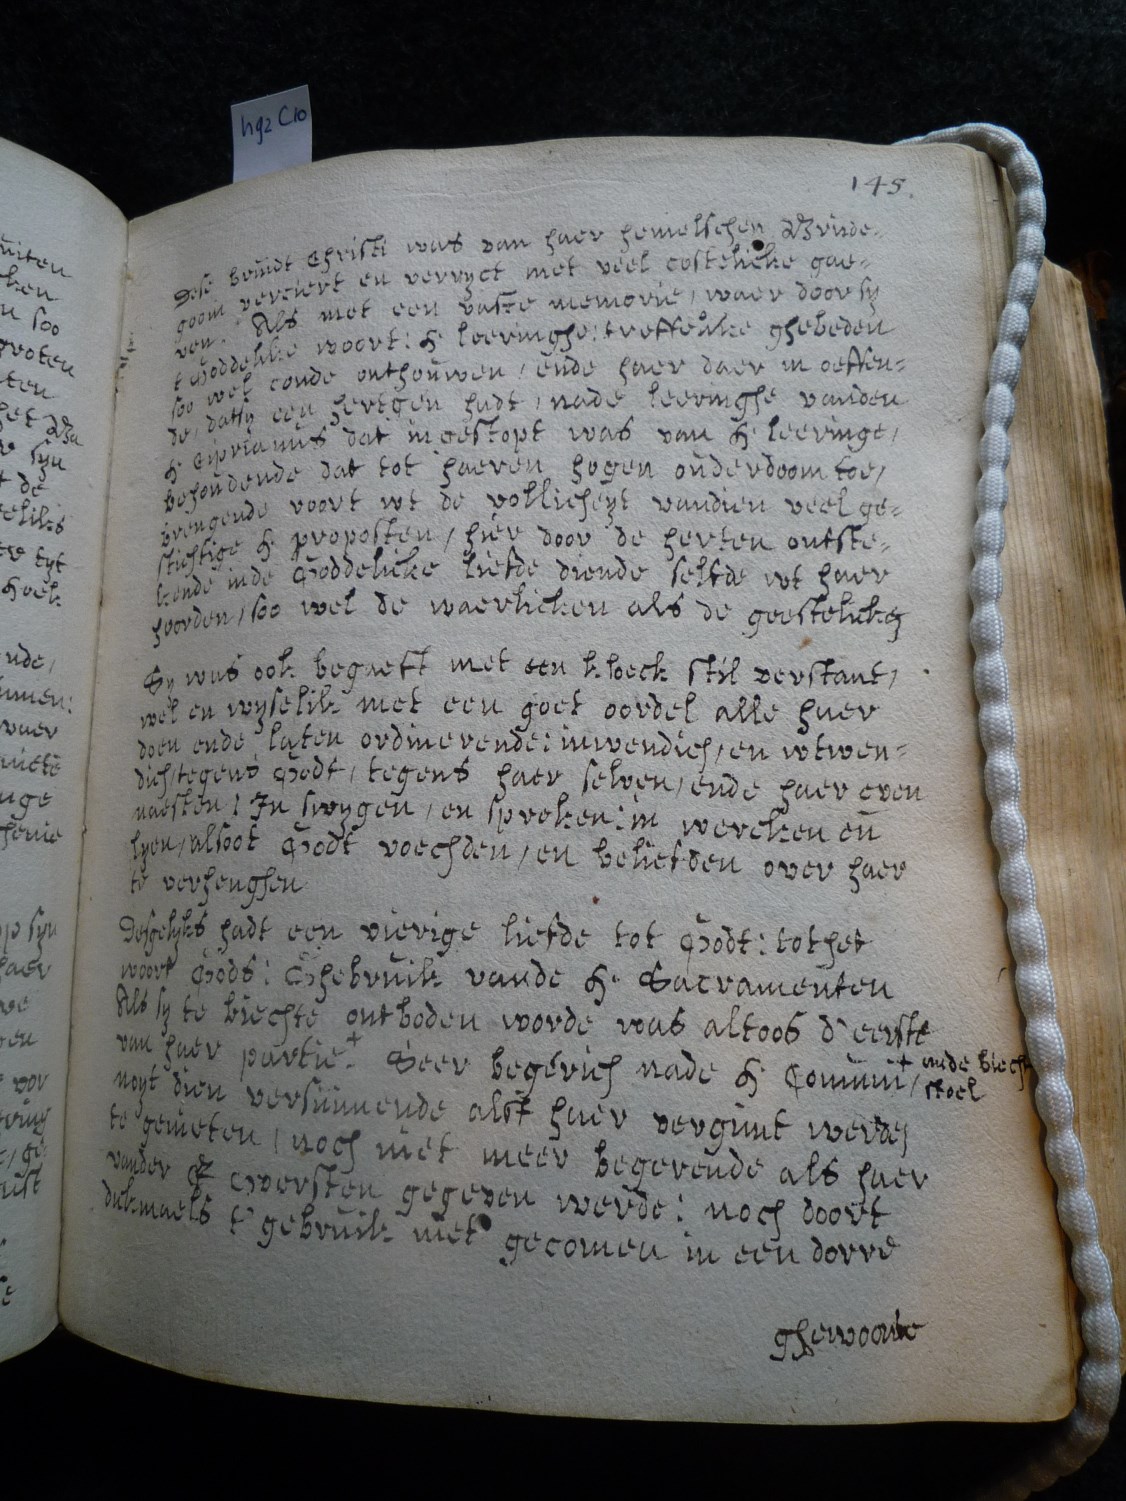 hgz C10
145.
Dese bruidt Christi was van haer hemelschen Bruide-
goom verciert en verryct met veel costelicke gae-
ven. Als met een vaste memorie, waer door sy
t Goddelike woort: H leeringhe: treffelike ghebeden
soo wel conde onthouwen, ende haer daer in oeffen-
de, datsy een hertgen hadt, nade leeringhe vanden
H Ciprianus dat ingestopt was van H leeringe,
behoudende dat tot haeren hogen ouderdoom toe,
brengende voort wt de vollicheyt vandien veel ge-
stichtige H proposten, hier door de herten ontste-
kende inde Goddelicke liefde diende selfde wt haer
hoorden, soo wel de waerlicken als de geestelicken
Sy was ook begaeft met een kloeck stil verstant,
wel en wyselik met een goet oordel alle haer
doen ende laten ordinerende: inwendich, en wtwen-
dich, tegens Godt, tegens haer selven, ende haer even
naesten, In swygen, en spreken: in wercken en
lyen, alsoot Godt voechden, en beliefden over haer
te verhenghen
Desgelyks hadt een vierige liefde tot Godt: tot het
woort Gods: Ghebruik vande H. Sacramenten
Als sy te biechte ontboden worde was altoos d'eerste
van haer partie + Seer begerich nade H Communi,
+ inde biecht
stoel
noyt dien versuimende alst haer vergunt werde
te genieten, noch niet meer begerende als haer
vander Oversten gegeven werde: noch doort
dickmaels t gebruik niet gecomen in een dorre
ghewoonte
uiten
ken
n soo
groten
ten